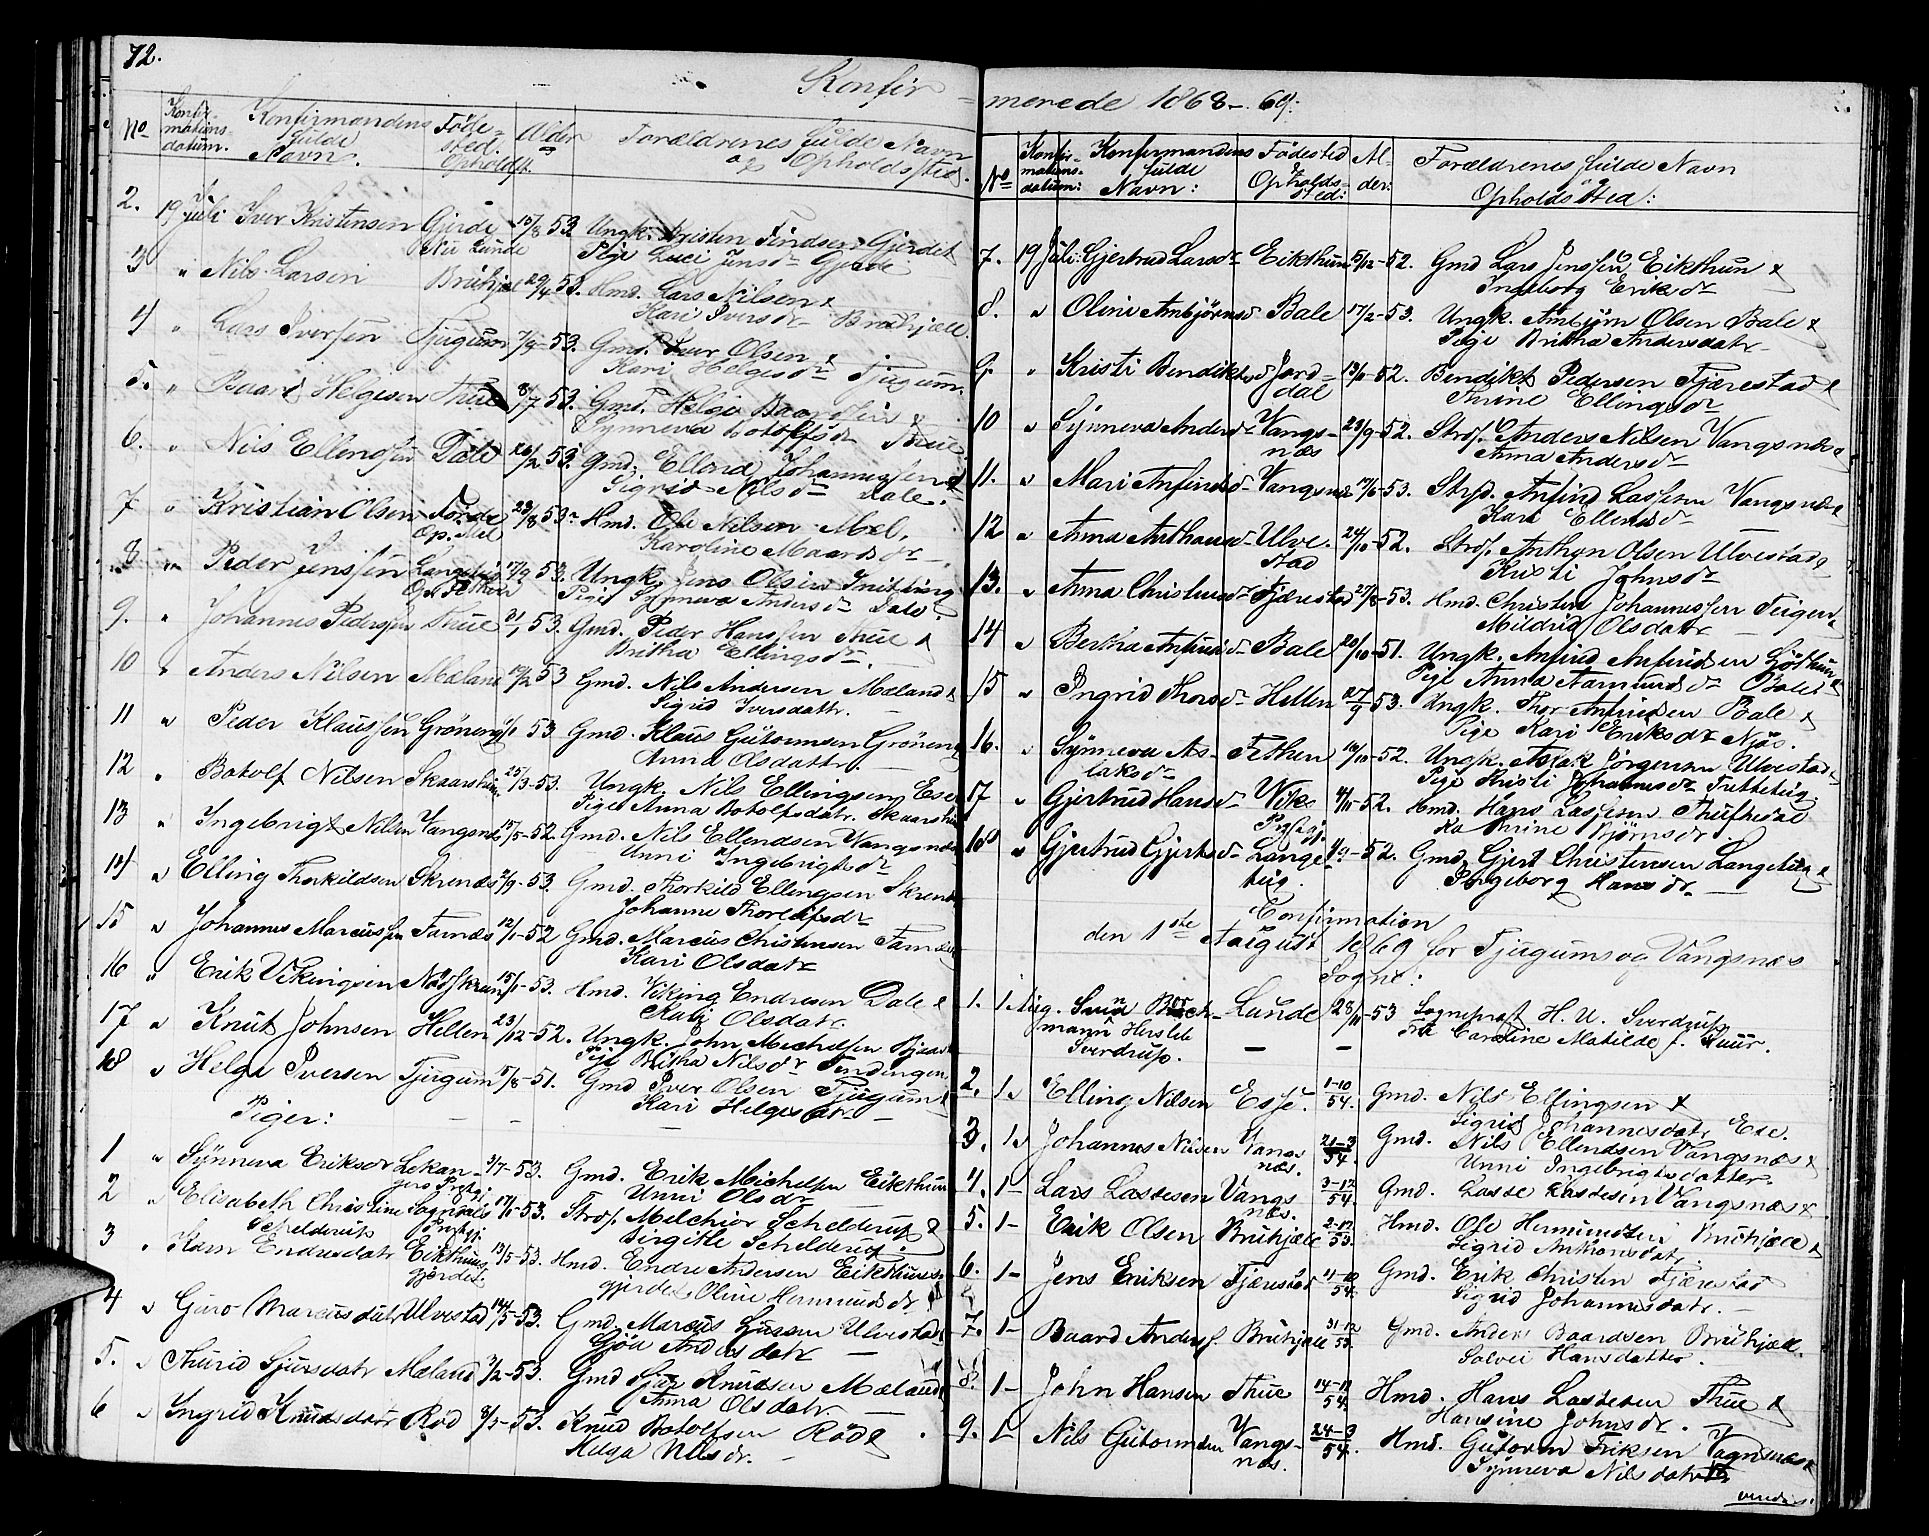 72.
Konfir-
No Konfir-mations-datum. Konfirmandens fulde Navn. Føde-sted. Opholdst. Alder Forældrenes fulde Navn og Opholdsted.
2. 19 juli Iver Kristensen Gjerde 15/8 53 Ungk. Kristen Findsen Gjerdet
Nu Lunde Pige Luci Jensdr Gjerde
3 " Nils Larsen Bruhjæl 29/4 53. Hmd. Lars Nilsen &
Kari Iversdr Bruhjæll.
4 " Lars Iversen Tjugum 7/9-53. Gmd. Iver Olsen &
Kari Helgesdr Tjugum.
5. " Baard Helgesen Thue 8/7 53. Gmd. Helge Baardsen &
Synneva Botolfsdr Thue
6. " Nils Ellendsen Dale 26/2 53. Gmd. Ellend Johannessen &
Sigrid Nilsdr Dale.
7 " Kristian Olsen Førde 23/8 53 Hmd. Ole Nilsen Mæl.
Op. Mel Karoline Maardsdr
8 " Peder Jenssen 17/9 53. Ungk. Jens Olsen
Op. Fethen Pige Synneva Andersdr Dale.
9. " Johannes Pederssen Thue 31/1 53. Gmd. Peder Hanssen Thue &
Britha Ellingsdr.
10 " Anders Nilsen Mæland 12/2 53 Gmd. Nils Andersen Mæland &
Sigrid Iversdatr.
11 " Peder Klaussen Grøneng 53 Gmd. Klaus Gutormsen Grøneng
Anna Olsdatr.
12 " Botolf Nilsen Skaarshim 25/3-53. Ungk. Nils Ellingsen Ese
Pige Anna Botolfsdatr. Skaarshim
13 " Ingebrigt Nilsen Vangsnes 15/5-52. Gmd. Nils Ellendsen Vangsnæs
Unni Ingebrigtsdr
14 " Elling Thorkildsen Skrenæs 2/9-53. Gmd. Thorkild Ellingsen Skrenæs
Johanne Thorleifsdr
15 " Johannes Marcussen Farnæs 12/1-52 Gmd. Marcus Christensen Farnæs
Kari Olsdatr
16 " Erik Vikingsen 15/1-53. Hmd. Viking Endresen Dale &
Kari Olsdatr.
17 " Knut Johnsen Hellen 23/12-52. Ungk. John Michelsen
Pige Britha Nilsdr Tendingen.
18 " Helge Iversen Tjugum 7/8-51. Gmd Iver Olsen Tjugum &
Kari Helgesdatr.
Piger:
1 " Synneva Eriksdr Lekan- 3/7-53. Gmd. Erik Michelsen Eikthun
gers Prstgj. Unni Olsdr
2 " Elisabeth Christine Sogndals 17/1-53. Strds. Melchior Schelderup &
Schelderup Prstgj. Birgitte Schelderup.
3 " Karn Endresdatr Eikthuns- 13/5-53. Hmd. Endre Andersen Eikthuns-
gjerdet. gjerdet Oline Hermundsdr.
4 " Guro Marcusdatr Ulvestad 14/5-53. Gmd. Marcus Ulvestad &
Gjøa Andersdatr
5. " Thurid Sjursdatr Mæland 3/2-53. Gmd Sjur Knudsen Mæland &
Anna Olsdatr.
6 " Ingrid Knudsdatr Rød 8/5-53. Knud Botolfsen Röd &
Helga Nilsdr.
merede 1868-69:
No Konfir-mations-datum: Konfirmandens fulde Navn: Fødested Opholds-sted: Al-der: Forældrenes fulde Navn Opholdssted:
7. 19 Juli: Gjertrud Larsdr Eikthun 5/12-52. Gmd Lars Jenssen Eikthun &
Ingeborg Eriksdr
8. " Oline Anbjørnsd Bale 17/2-53. Ungk. Anbjørn Olsen Bale &
Pige Britha Andersdatr
9. " Kristi Bendiktsd Jord- 13/8-52. Bendikt Pedersen Fjærestad &
dal Anine Ellingsdr
10 " Synneva Andersdr Vangs- 23/9-52. Strds. Anders Nilsen Vangsnæs &
næs Anna Andersdr
11. " Mari Anfindsd Vangsnæs 17/6-53. Strds. Anfind Lassesen Vangsnæs &
Kari Ellendsdr
12 " Anna Anthonsd Ulve- 24/10-52. Strds. Anthon Olsen Ulvestad &
stad Kristi Johnsdr
13. " Anna Christensdr Fjærestad 27/8-53. Hmd. Christen Johannessen Teigen &
Mildrid Olsdatr
14 " Bertha Anfindsd Bale 20/10-51. Ungk. Anfind Anfindsen &
Pige Anna Aamundsdr Bale
15 " Ingrid Thorsdr Hellen 27/9 53. Ungk. Thor Anfindsen Bale &
Pige Kari Eriksdr Njøs.
16. " Synneva As- Fethen 16/10-52. Ungk. Aslak Jørgensen Ulvestad &
laksdr Pige Kristi Johannesdr Tufteteig
17 " Gjertrud Hansd Viks 4/11-52. Hmd. Hans Lassesen
Prstgj. Anine Bjørnsdr
18 " Gjertrud Gjertsd Lange- 4/9-52. Gmd. Gjert Christensen Langeteig &
teig. Ingeborg Hansdr.
Confirmation
den 1ste August 1869 for Tjugums og Vangsnæs
Sogne:
1. 1 Aug. Svend Borch- Lunde 28/11-53 Sogneprest H. U. Sverdrup
mann Hersleb Fru Caroline Matilde f. Suur.
Sverdrup. - -
2. 1 " Elling Nilsen Esse. 1-10/54. Gmd. Nils Ellingsen &
Sigrid Johannesdatr Ese.
3. 1 " Johannes Nilsen Vangs- 21-3/54. Gmd. Nils Ellendsen Vangsnæs &
næs. Unni Ingebrigtsdatter.
4. 1 - Lars Lassesen Vangs- 3-12/54. Gmd. Lasse Lassesen Vangsnæs &
næs.
5. 1 - Erik Olsen Bruhjæle 2-12/53. Hmd. Ole Hermundsen Bruhjæle &
Sigrid Anthonsdatr
6. 1 - Jens Eriksen Fjærestad 11-10/54. Gmd. Erik Christen Fjærestad
Sigrid Johannesdatr.
7. 1 - Baard Anders. Bruhjæle 31-12/53. Gmd. Anders Baardsen Bruhjæle.
Solvei Hansdatter.
8. 1 - John Hansen Thue 14-11/54. Hmd. Hans Lassesen Thue &
Hansine Johnsdr.
9. 1 - Nils Gutormsen Vangs- 24-3/54. Hmd. Gutorm Eriksen Vagnsnæs &
næs. Synneva Nilsdatr